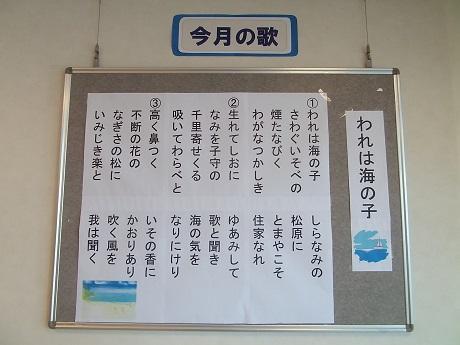 今月の歌
われは海の子
①われは海の子　しらなみの
さわぐいそべの　松原に
煙たなびく　とまやこそ
わがなつかしき　住家なれ
②生れてしおに　ゆあみして
なみを子守の　歌と聞き
千里寄せくる　海の気を
吸いてわらべと　なりにけり
③高く鼻つく　いその香に
不断の花の　かおりあり
なぎさの松に　吹く風を
いみじき楽と　我は聞く